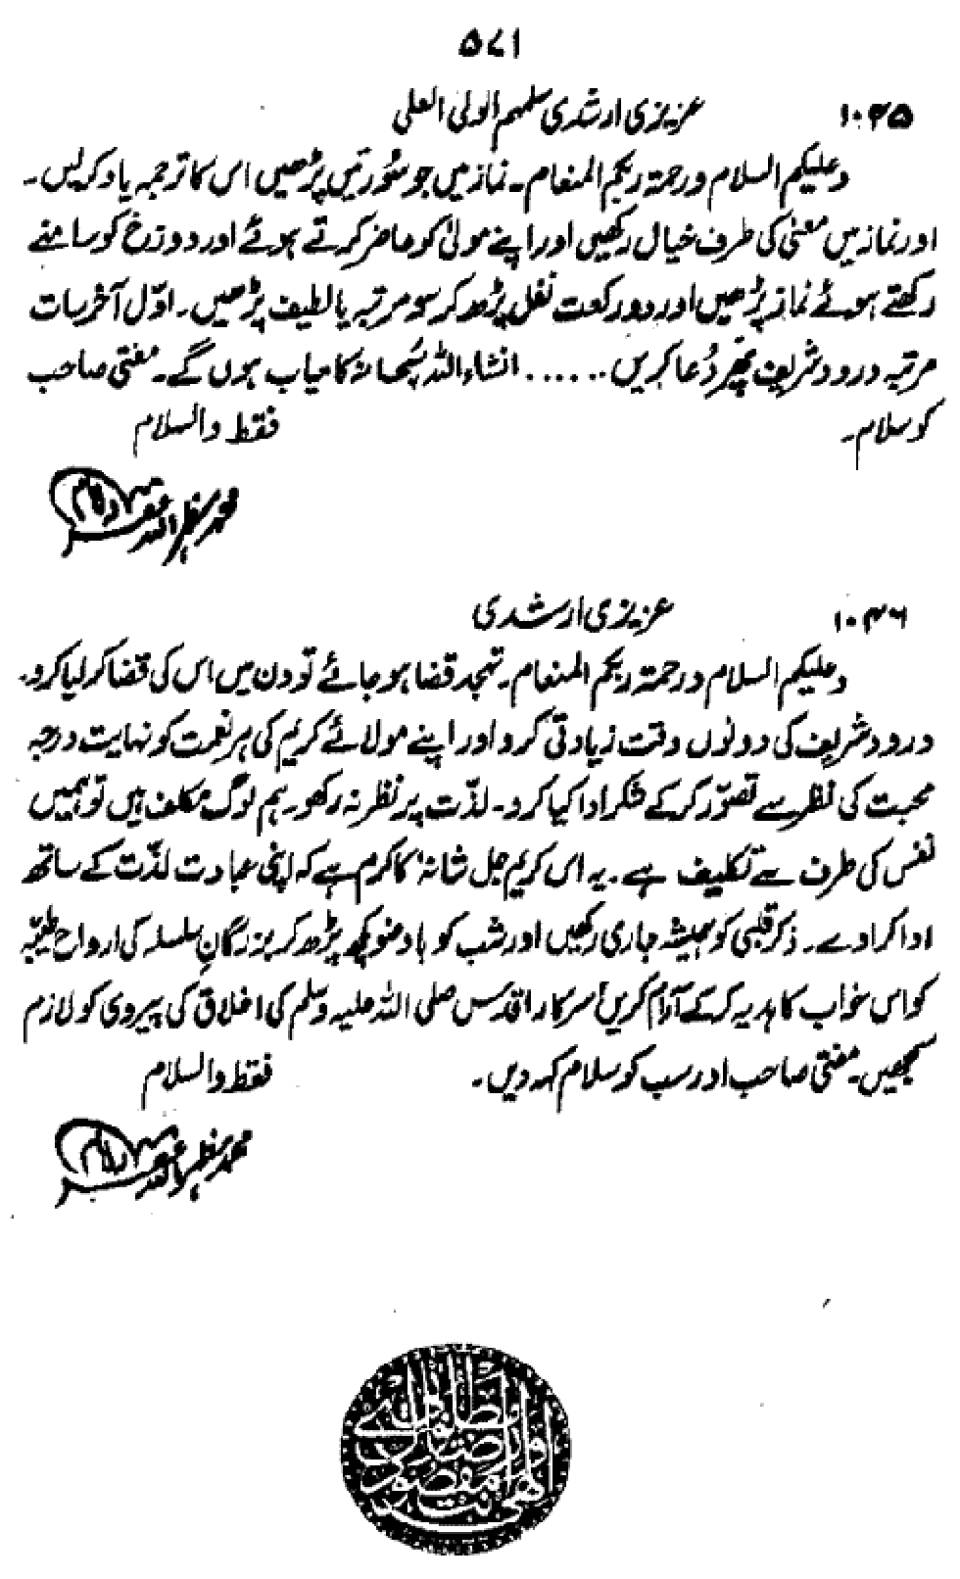 ۵۷۱
۱۰۴۵ عزیزی ارشدی سلمہم الولی العلی
وعلیکم السلام ورحمۃ ربکم المنعام۔ نماز میں جو سُورتیں پڑھیں اس کا ترجمہ یاد کرلیں۔
اور نماز میں معنٰی کی طرف خیال رکھیں اور اپنے مولیٰ کو حاضر کرتے ہوئے اور دوزخ کو سامنے
رکھتے ہوئے نماز پڑھیں اور دو رکعت نفل پڑھ کر سو مرتبہ یا لطیف پڑھیں۔ اوّل آخر سات
مرتبہ درود شریف پھر دُعا کریں ...... انشاء اللہ سُبحانہٗ کامیاب ہوں گے۔ مفتی صاحب
کو سلام۔ فقط والسلام
محمد مظہر اللہ غفرلہ
۱۰۴۶ عزیزی ارشدی
وعلیکم السلام ورحمۃ ربکم المنعام۔ تہجد قضا ہو جائے تو دن میں اس کی قضا کر لیا کرو۔
درود شریف کی دونوں وقت زیادتی کرو اور اپنے مولائے کریم کی ہر نعمت کو نہایت درجہ
محبت کی نظر سے تصوّر کرکے شکر ادا کیا کرو۔ لذّت پر نظر نہ رکھو۔ ہم لوگ مکلف ہیں تو ہمیں
نفس کی طرف سے تکلیف ہے۔ یہ اس کریم جل شانہٗ کا کرم ہے کہ اپنی عبادت لذّت کے ساتھ
ادا کرادے۔ ذکر قلبی کو ہمیشہ جاری رکھیں اور شب کو باوضو کچھ پڑھ کر بزرگانِ سلسلہ کی ارواح طیّبہ
کو اس ثواب کا ہدیہ کرکے آرام کریں سرکار اقدس صلی اللہ علیہ وسلم کی اخلاق کی پیروی کو لازم
سمجھیں۔ مفتی صاحب اور سب کو سلام کہہ دیں۔ فقط والسلام
محمد مظہر اللہ غفرلہ
الهي انت مقصودي ورضاك مطلوبي